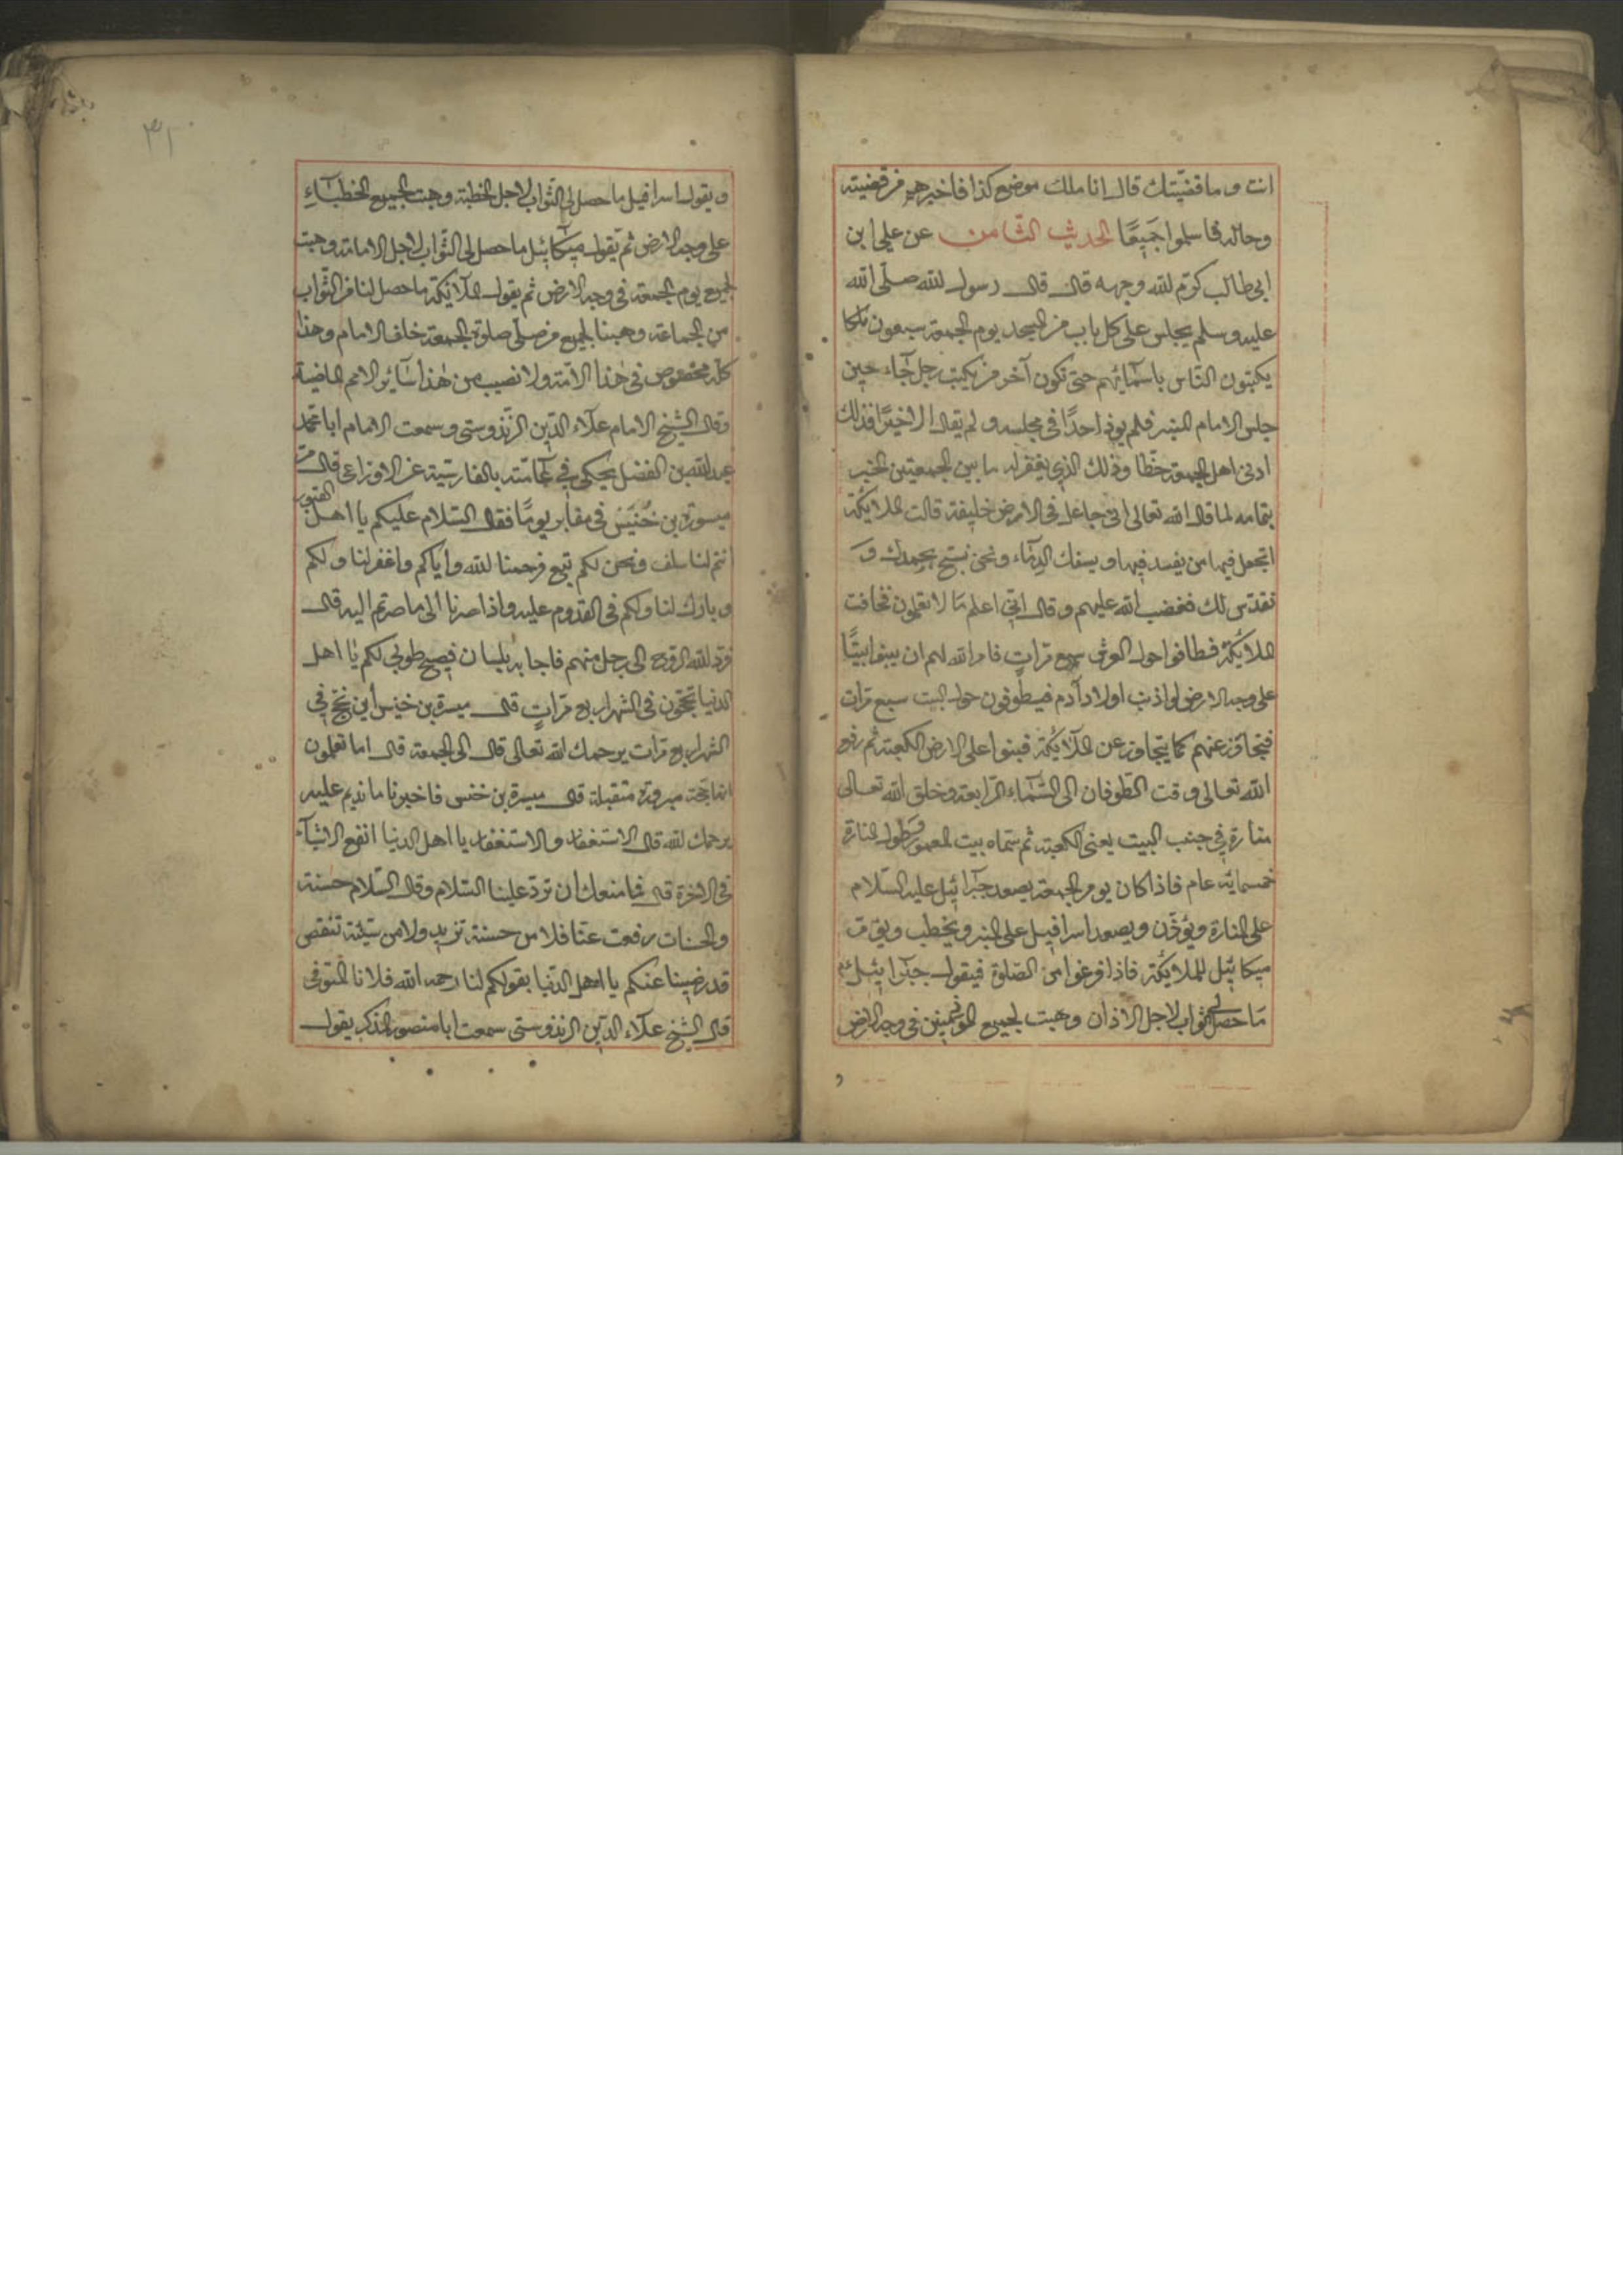 انت وما قضيّتك قال انا ملك موضع كذا فاخبرهم من قضيته
وحاله فاسلموا جَمِيعًا الحديث الثامن عن علي ابن
ابى طالب كرّم الله وجهه قال قال رسول الله صلّى الله
عليه وسلم يجلس على كل باب من المسجد يوم الجمعة سبعون ملكا
يكتبون النّاس باسمآئهم حتى تكون آخر من يكتب رجل جآء حين
جلس الامام المنبر فلم يوذ احدًا فى مجلسه ولم يقال الا خيرًا فذلك
ادنى اهل الجمعة حظّا وذلك الذي يغفر له ما بين الجمعتين الخبر
بتمامه لما قال الله تعالى انى جاعل فى الارض خليفة قالت الملائكة
اتجعل فيها من يفسد فيها ويسفك الدمآء ونحن نسبّح بحمدك وَ
نقدّس لك فغضب الله عليهم وقال انّى اعلم مَا لا تعلمون فخافت
الملائكة فطافوا حول العرش سبع مرّاتٍ فامر الله لهم ان يبنوا بيتًا
على وجه الارض لو اذنب اولاد آدم فيطوفون حول البيت سبع مرّات
فيتجاوز عنهم كما يتجاوز عن الملآئكة فبنوا على الارض الكعبة ثم رفع
الله تعالى وقت الطّوفان الى السّمآء الرّابعة وخلق الله تعالى
منارة في جنب البيت يعنى الكعبة ثم سمّاه بيت المعمور وطول المنارة
خمسمائة عام فاذا كان يوم الجمعة يصعد جبرائيل عليه السّلام
على المنارة ويؤذّن ويصعد اسرافيل على المنبر ويخطب ويؤمّ
ميكائيل للملائكة فاذا فرغوا من الصّلوة فيقول جبرائيل عم
مَا حصل لى الثواب لاجل الاذان وهبت لجميع المؤذّنين فى وجه الارض
و
٣١
ويقول اسرافيل ما حصل لى الثّواب لاجل الخطبة وهبت لجميع الخطبآءِ
على وجه الارض ثم يقول ميكآئيل ما حصل لى الثّواب لاجل الامامة وهبت
لجميع يوم الجمعة فى وجه الارض ثم يقول الملآئكة ما حصل لنا من الثّواب
من الجماعة وهبنا لجميع من صلّى صلوة الجمعة خلف الامام وهذا
كلّه مخصوص فى هذا الامّة ولا نصيب من هذا سآئر الامم الماضية
وقال الشّيخ الامام علآء الدّين الزّندوستى وسمعت الامام ابا محمّد
عبد الله بن الفضل يحكى في عامّته بالفارسيّة عن الاوزاعى قال مرّ
ميسرة بن خُنَيس فى مقابر يومًا فقال السّلام عليكم يا اهل القبور
انتم لنا سلف ونحن لكم تبع فرحمنا الله واياكم واغفر لنا ولكم
وبارك لنا ولكم فى القدوم عليه واذا صرنا الى ما صرتم اليه قال
فردّ الله الروح الى رجل منهم فاجابه بلسان فصيح طوبى لكم يا اهل
الدنيا تحجّون فى الشهر اربع مرّاتٍ قال ميسرة بن خنيس أين نحجّ في
الشهر اربع مرّات يرحمك الله تعالى قال الى الجمعة قال اما تعلمون
انها حجّة مبرورة متقبلة قال ميسرة بن خنس فاخبرنا ما نديم عليه
يرحمك الله قال الاستغفار والاستغفار يا اهل الدنيا انفع الاشيآء
فى الاخرة قال فما منعك ان تردّ علينا السّلام وقال السّلام حسنة
والحسنات رفعت عنّا فلا من حسنة تزيد ولا من سيّئة تنقص
قد رضينا عنكم يا اهل الدّنيا بقولكم لنا رحم الله فلانا المتوفى
قال الشيخ علآء الدّين الزندوستى سمعت ابا منصور المذكر يقول